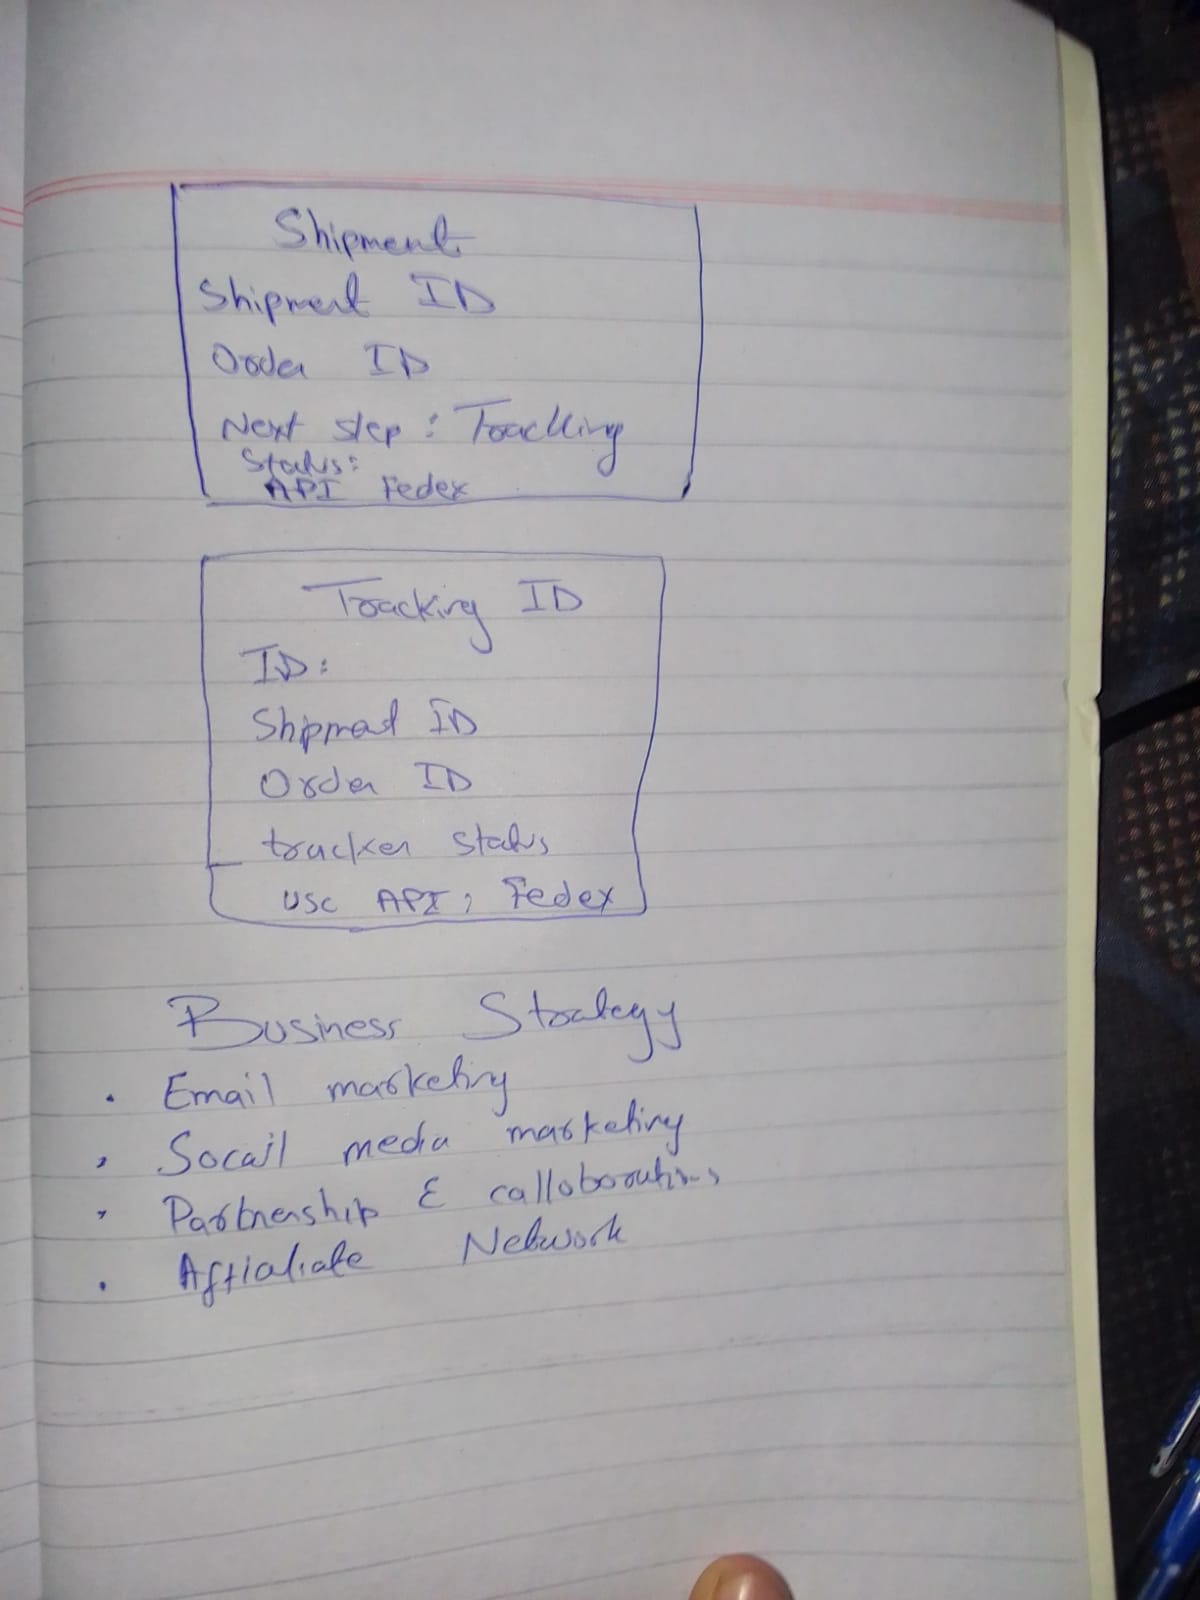 Shipment
Shipment ID
Order ID
Next step : Tracking
Status:
API Fedex
Tracking ID
ID:
Shipment ID
Order ID
tracker status
Use API: Fedex
Business Strategy
• Email marketing
• Socail media marketing
• Partnership & calloborations
• Affialiate Network